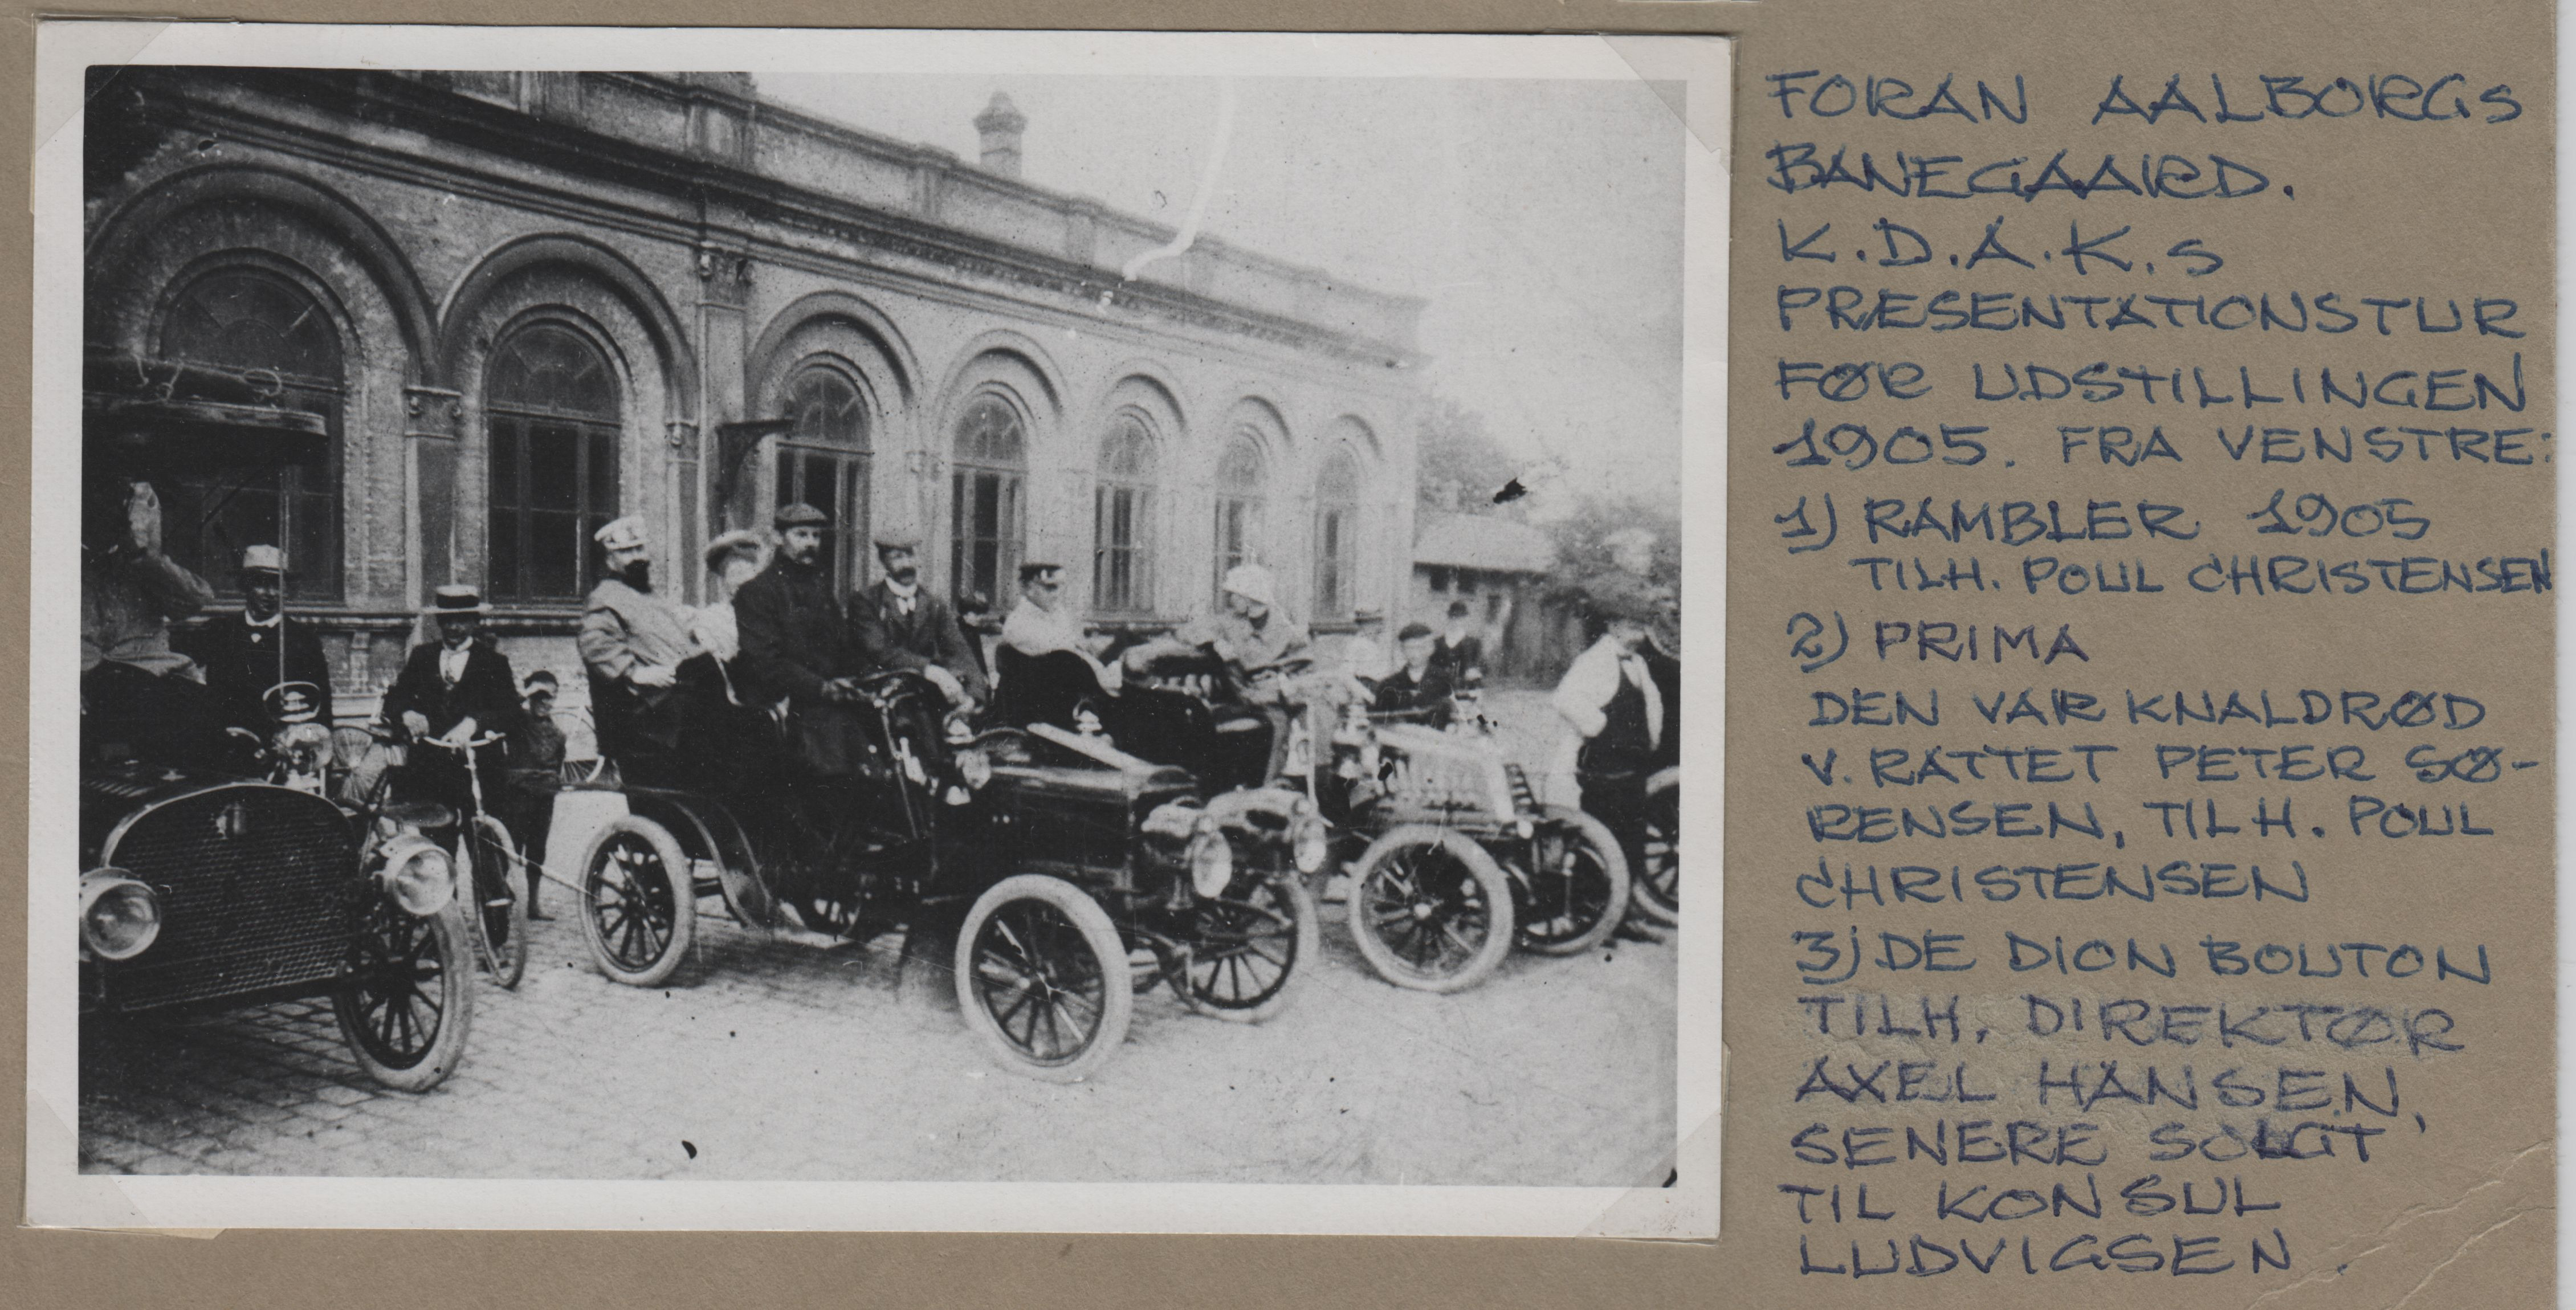 FORAN AALBORGs
BANEGAARD.
K.D.A.K.s
PRÆSENTATIONSTUR
FØR UDSTILLINGEN
1905. FRA VENSTRE:
1) RAMBLER 1905
TILH. POUL CHRISTENSEN
2) PRIMA
DEN VAR KNALDRØD
V. RATTET PETER SØ-
RENSEN, TILH. POUL
CHRISTENSEN
3) DE DION BOUTON
TILH. DIREKTØR
AXEL HANSEN,
SENERE SOLGT
TIL KONSUL
LUDVIGSEN.